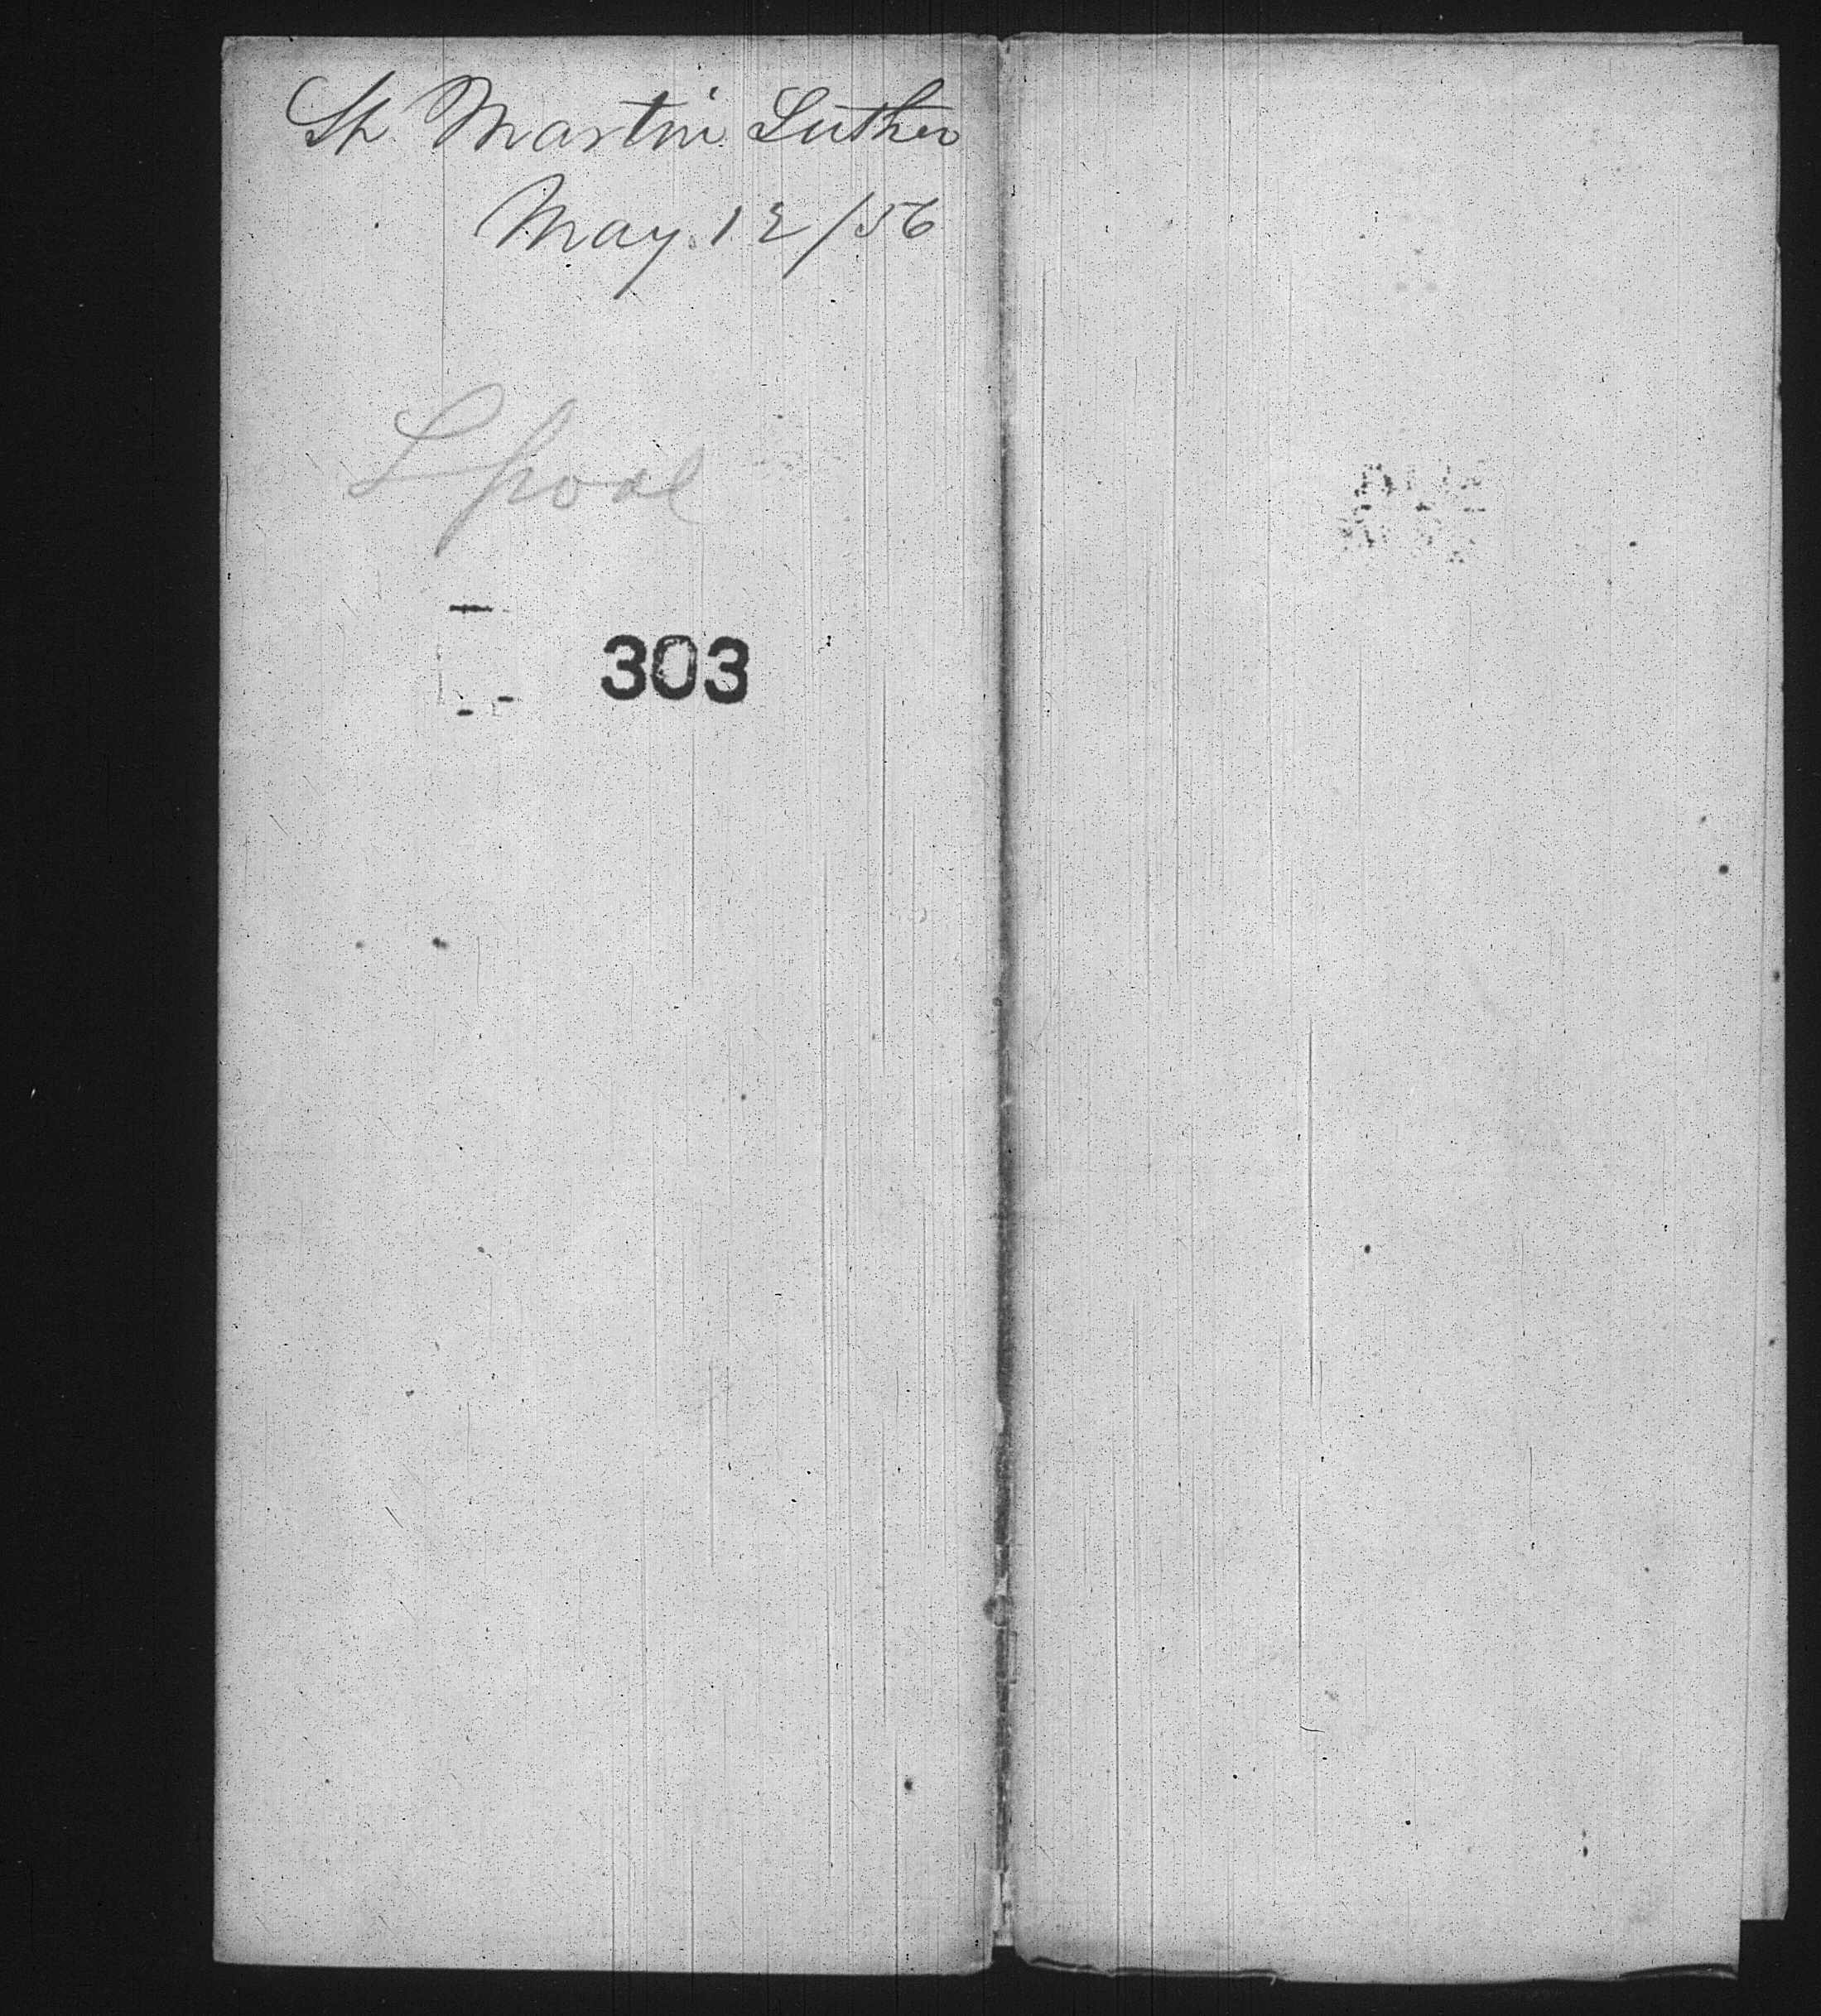 Sh Martin Luther
May 12/56
Lpool
303